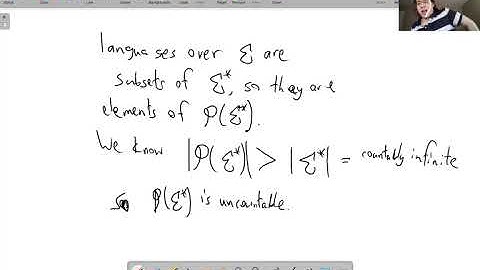 languages over Σ are
subsets of Σ*, so they are
elements of P(Σ*).
We know |P(Σ*)| > |Σ*| = countably infinite
so P(Σ*) is uncountable.